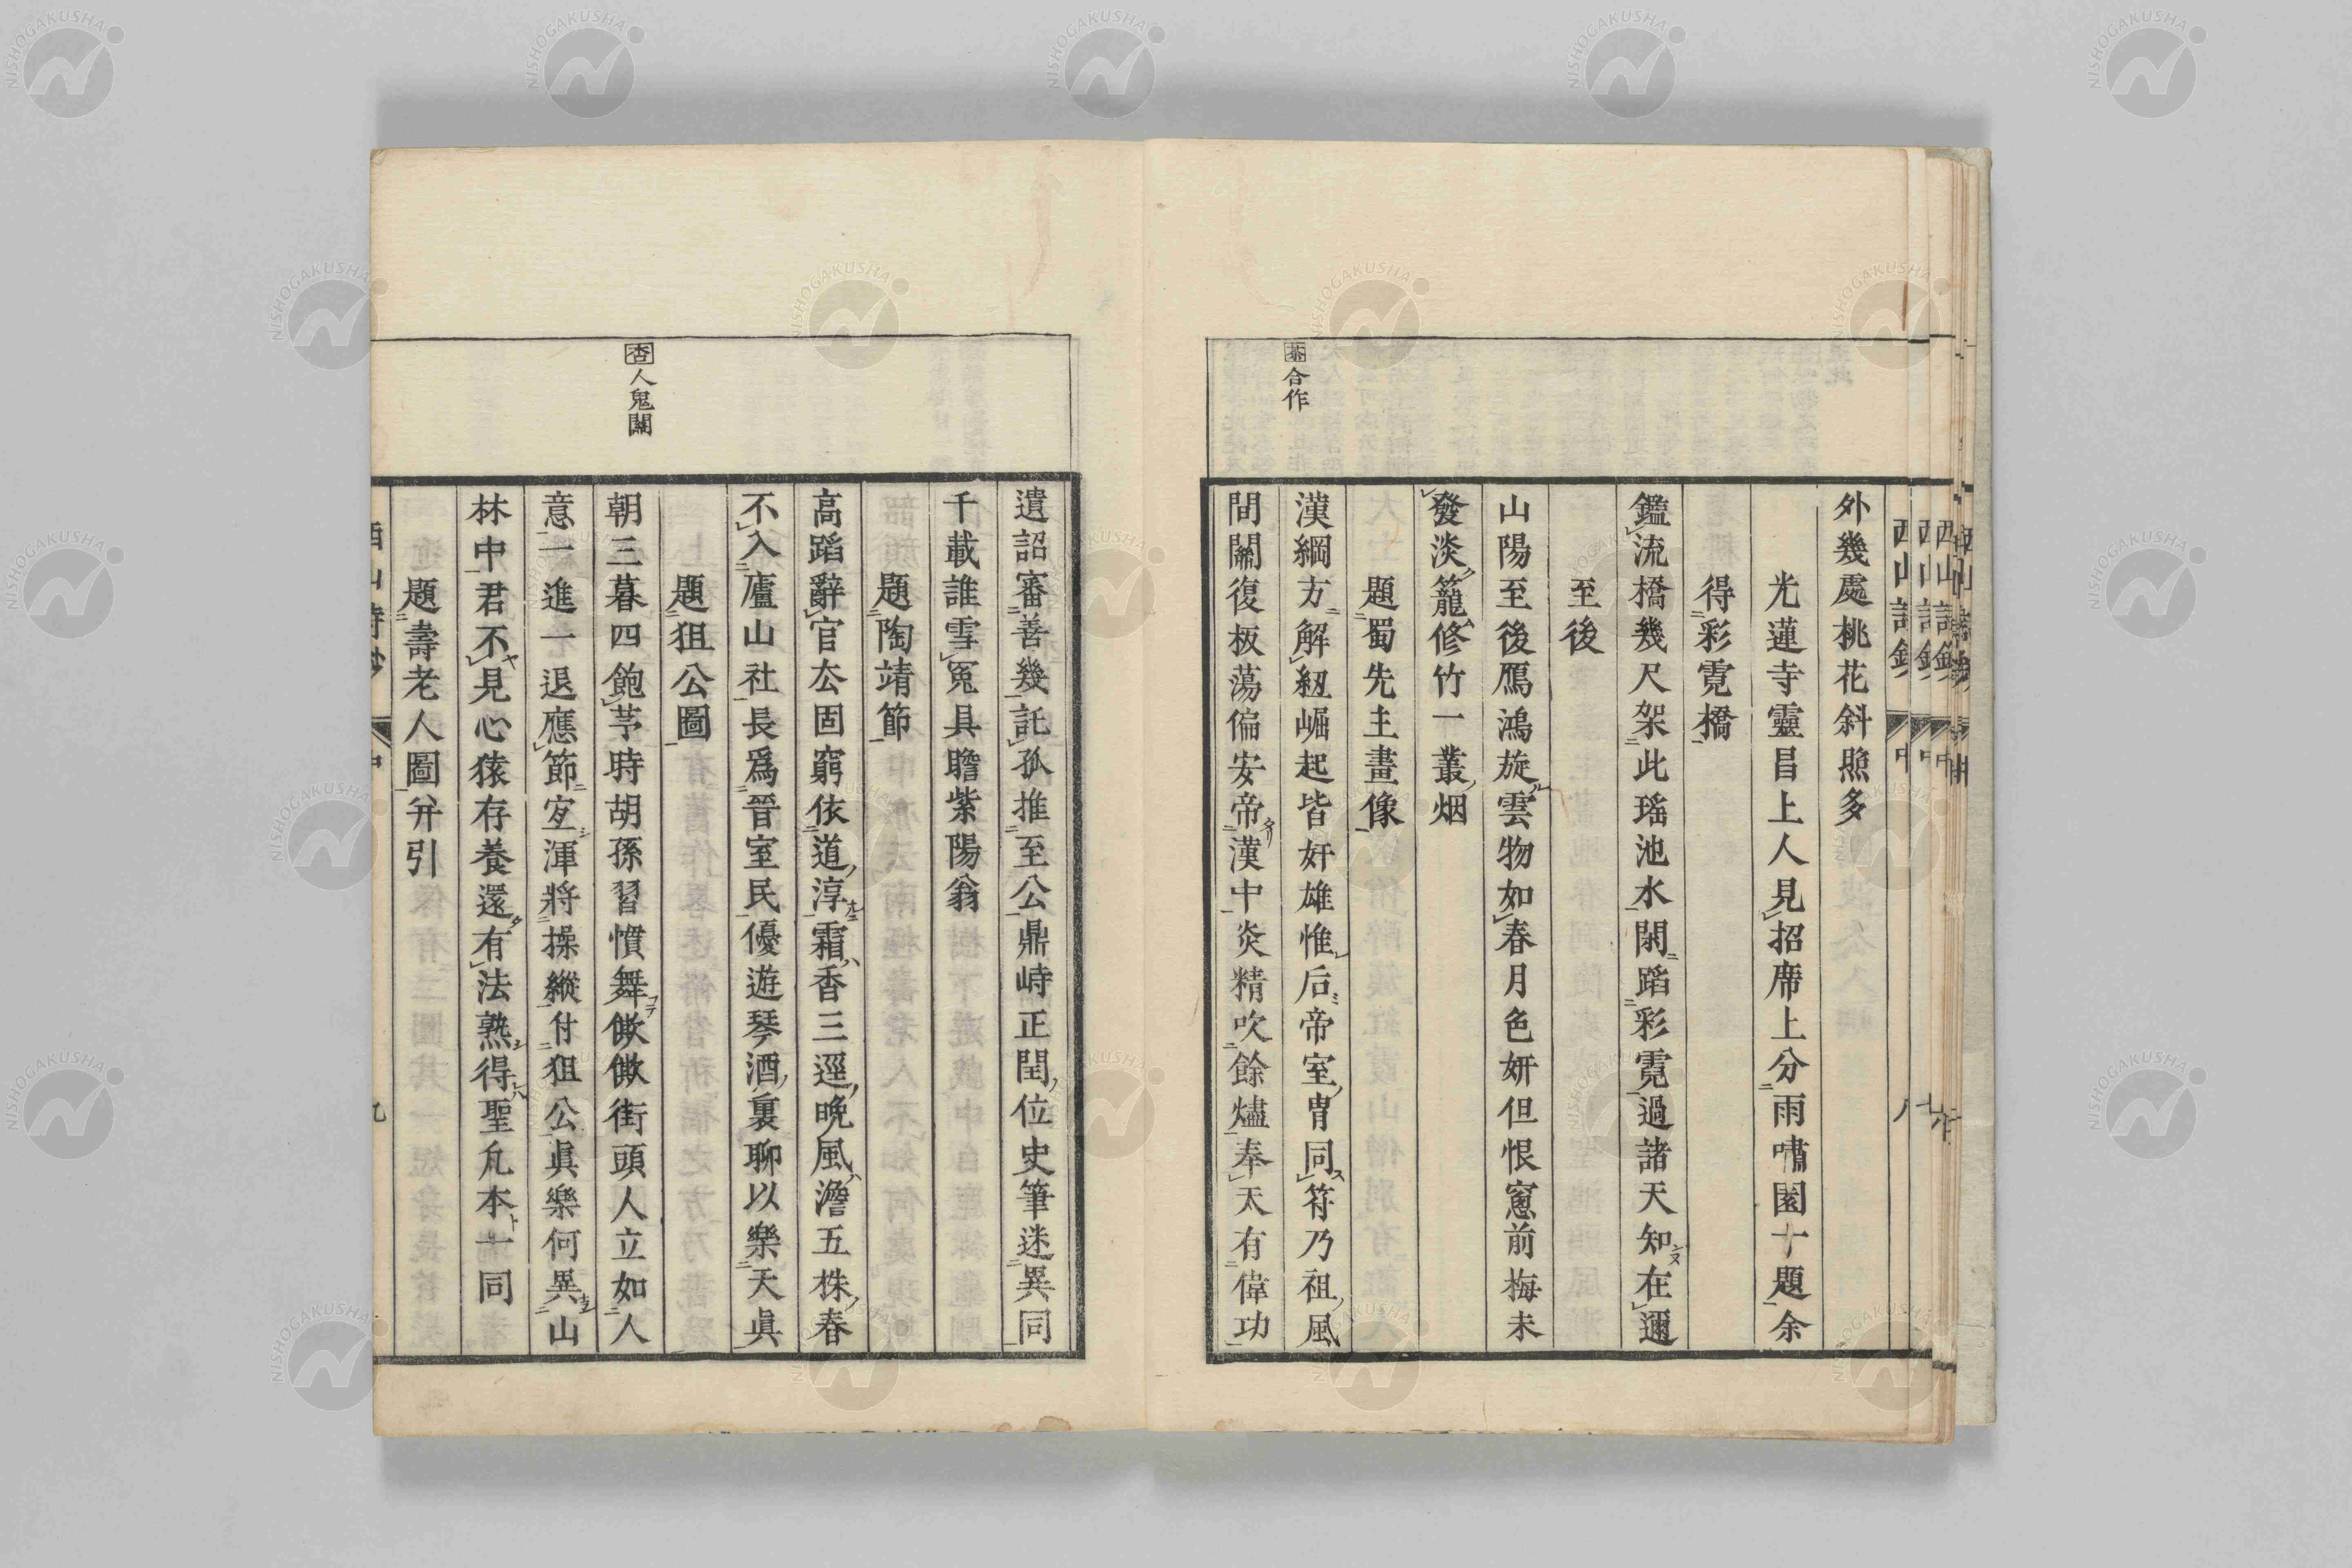 外幾處桃花斜照多
光蓮寺靈昌上人見招席上分雨嘯園十題余
得彩霓橋
鑑流橋幾尺架此瑤池水閑蹈彩霓過諸天知在邇
至後
山陽至後鴈鴻旋雲物如春月色妍但恨窻前梅未
發淡籠修竹一叢烟
題蜀先主畫像
漢綱方解紐崛起皆奸雄惟后帝室冑同符乃祖風
間關復板蕩偏安帝漢中炎精吹餘燼奉天有偉功
合作
遺詔審善幾託孤推至公鼎峙正閏位史筆迷異同
千載誰雪冤具瞻紫陽翁
題陶靖節
高蹈辭官厺固窮依道淳霜香三逕晚風澹五株春
不入廬山社長爲晉室民優遊琴酒裏聊以樂天眞
題狙公圖
朝三暮四飽芧時胡孫習慣舞僛僛街頭人立如人
意一進一退應節宐渾將操縱付狙公眞樂何異山
林中君不見心猿存養還有法熟得聖凡本一同
題壽老人圖幷引
杏人鬼關
西山詩鈔
中
九